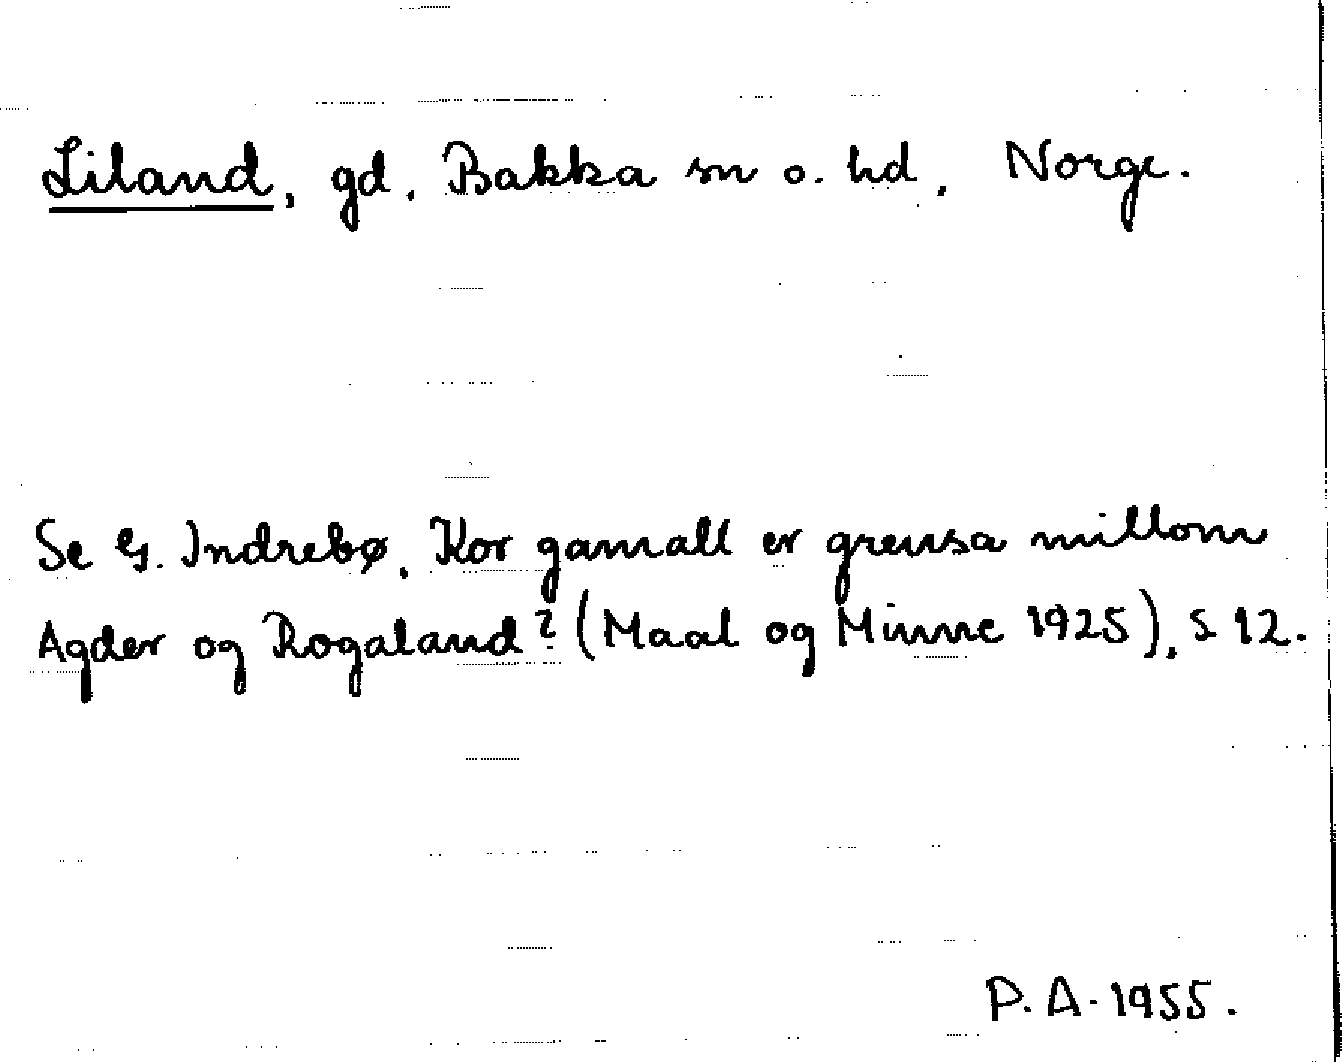 Liland, gd, Bakka sn o. hd, Norge.
Se G. Indrebø, Kor gamall er grensa millom
Agder og Rogaland? (Maal og Minne 1925), s 12.
P. A. 1955.